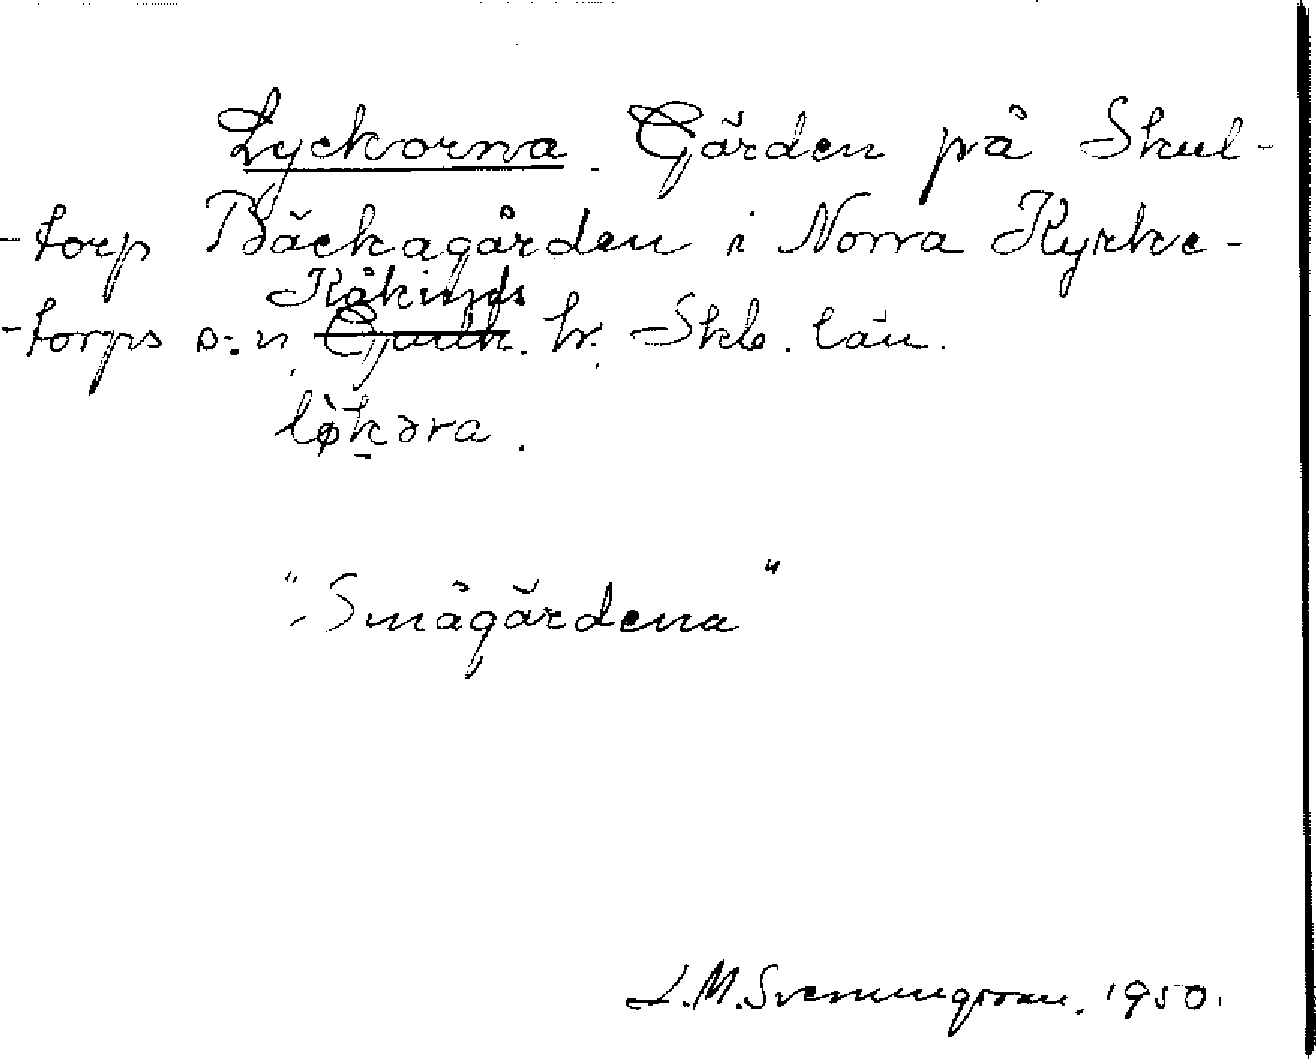 Lyckorna. Gärden på Skul-
-torp Bäckagården i Norra Kyrke-
Kåkinds
-torps s:n. Gudh. hr. Skb. län.
lø̀kəra.
"Smågärdena"
L.M. Svenungsson. 1950.